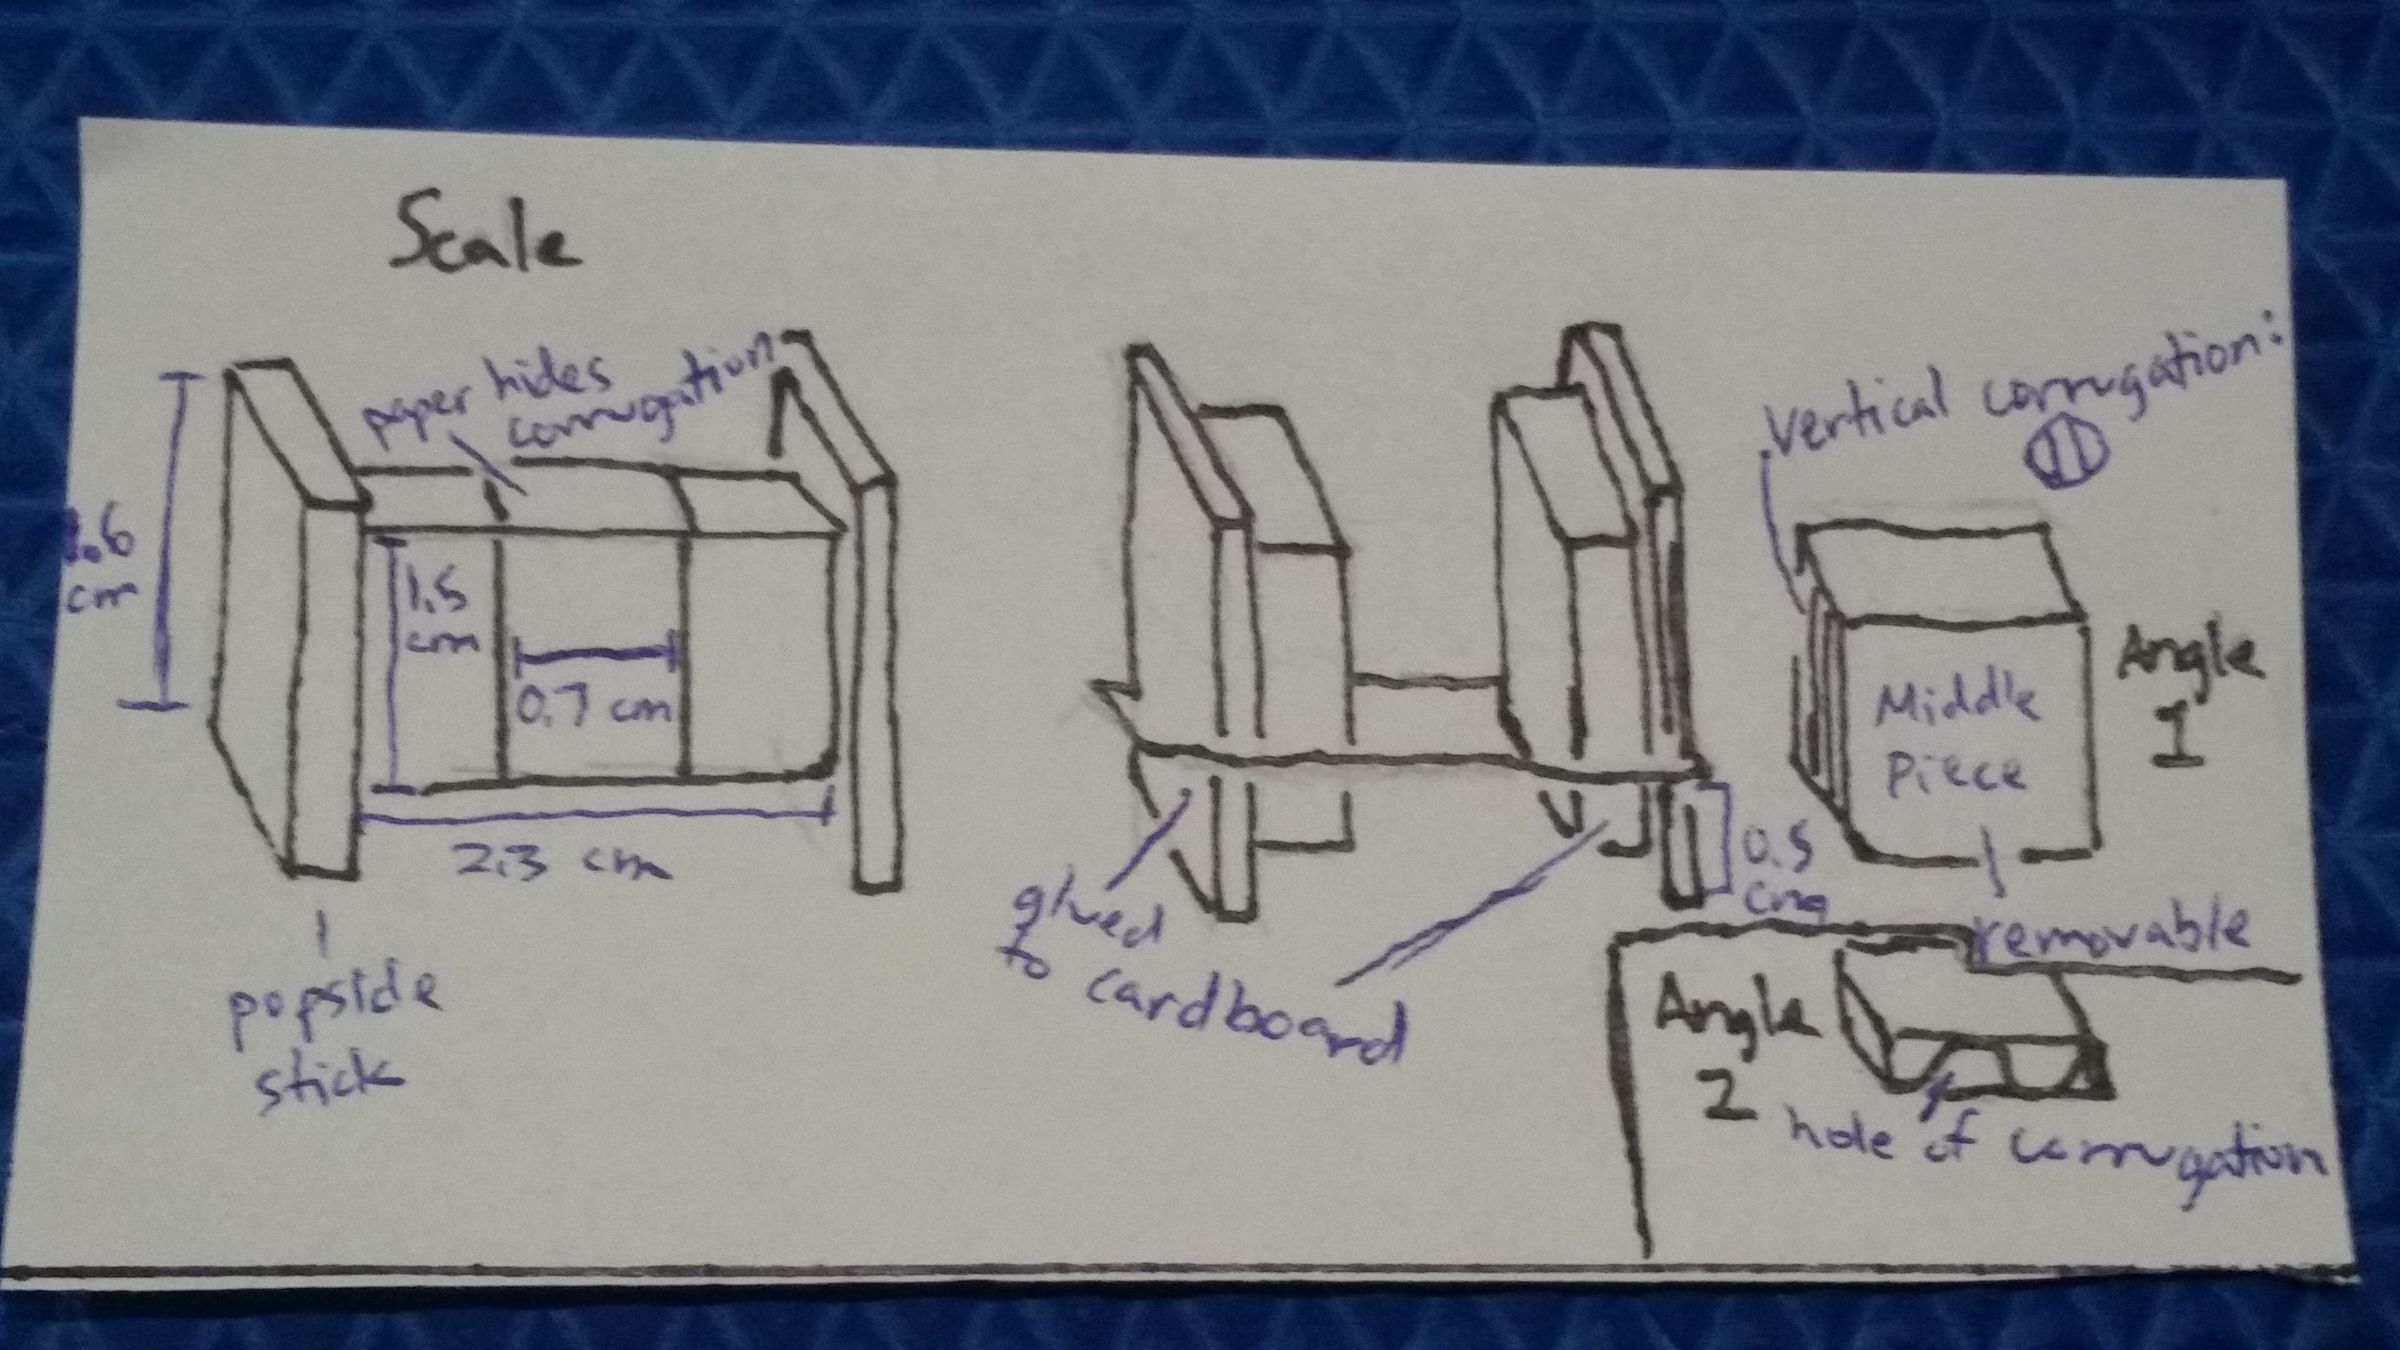 Scale
paper hides
corrugation
1.6
cm
1.5
cm
0.7 cm
2.3 cm
popsicle
stick
glued
to cardboard
0.5
cm
vertical corrugation:
Middle
Piece
Angle
1
removable
Angle
2
hole of corrugation